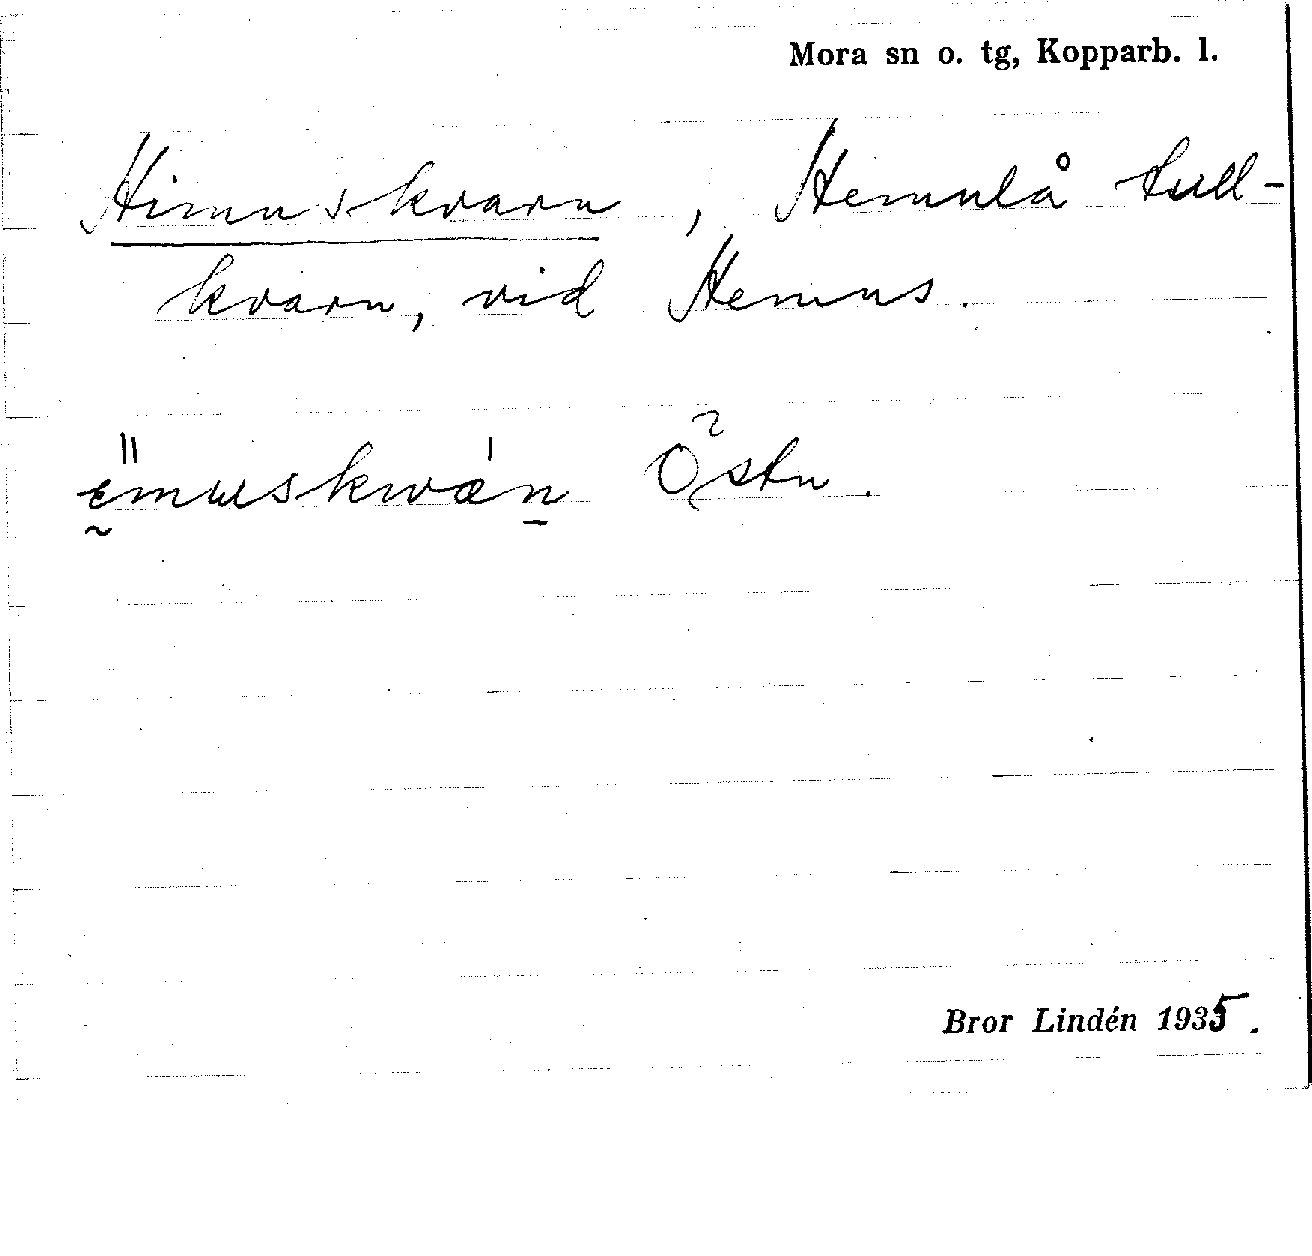 Mora sn o. tg, Kopparb. l.
Himuskvarn, Hemulå tull-
kvarn, vid Hemus.
Östn.
Bror Lindén 1935.